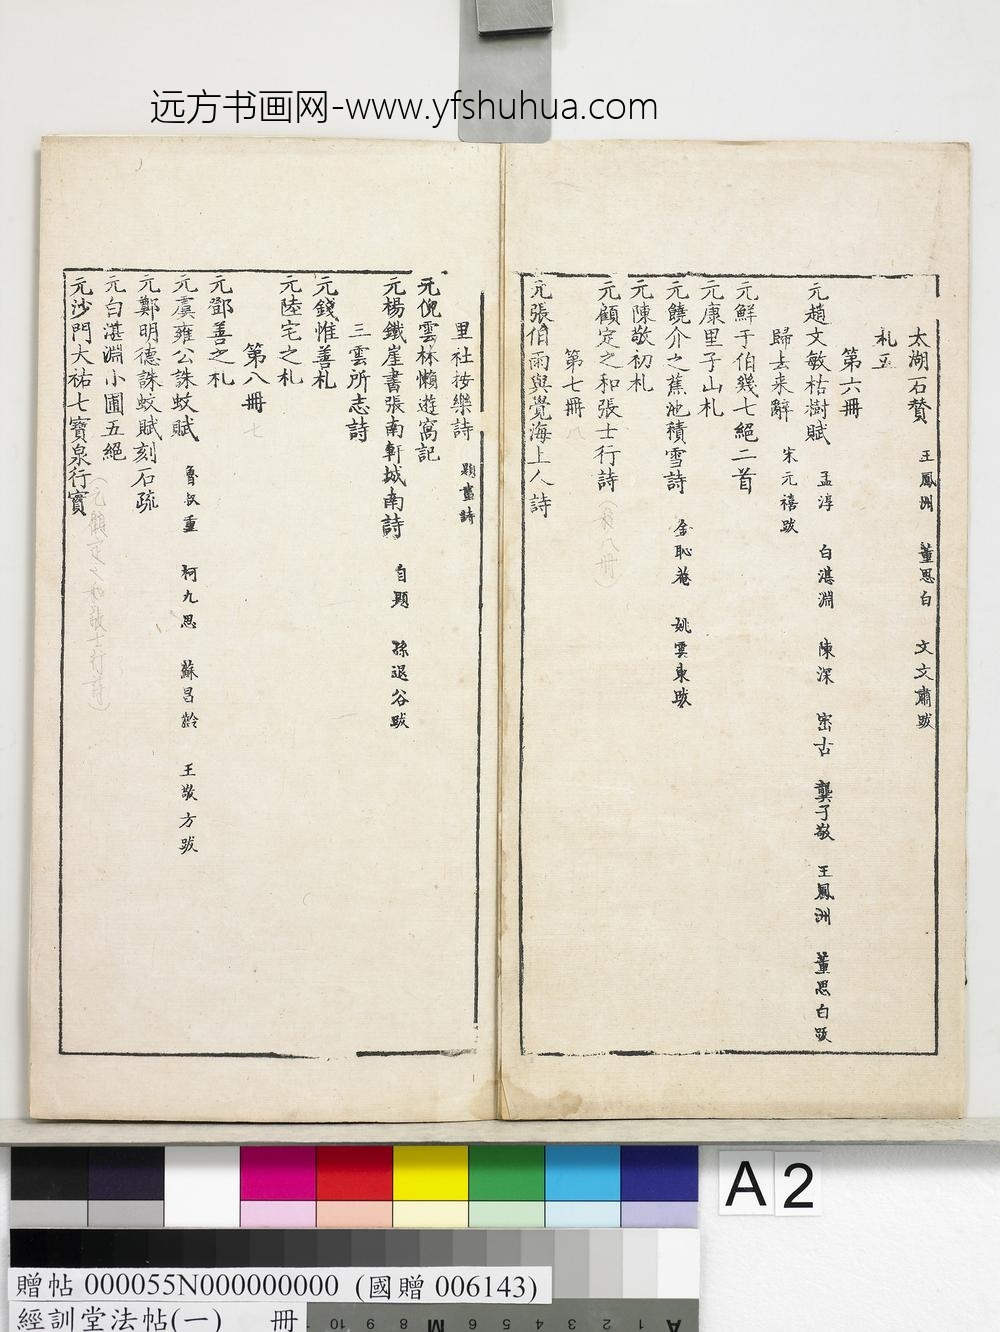 远方书画网-www.yfshuhua.com
太湖石賛 王鳳洲 董思白 文文肅跋
札五
第六冊
元趙文敏枯樹賦 孟淳 白湛淵 陳深 密古 龔子敬 王鳳洲 董思白跋
歸去来辭 宋元禧跋
元鮮于伯幾七絕二首
元康里子山札
元饒介之蕉池積雪詩 金恥菴 姚雲東跋
元陳敬初札
元顧定之和張士行詩 (後八冊)
第七冊 八
元張伯雨與覺海上人詩
里社按樂詩 題畫詩
元倪雲林懶遊窩記
元楊鐵崖書張南軒城南詩 自題 孫退谷跋
三雲所志詩
元錢惟善札
元陸宅之札
第八冊 七
元鄧善之札
元虞雍公誅蚊賦 魯叔重 柯九思 蘇昌齡 王敬方跋
元鄭明德誅蚊賦刻石疏
元白湛淵小圃五絕
(元顧定之和張士行詩)
元沙門大祐七寶泉行寶
A 2
贈帖 000055N000000000 (國贈 006143)
經訓堂法帖(一) 冊
10 9 8 M 6 5 4 3 2 1 A